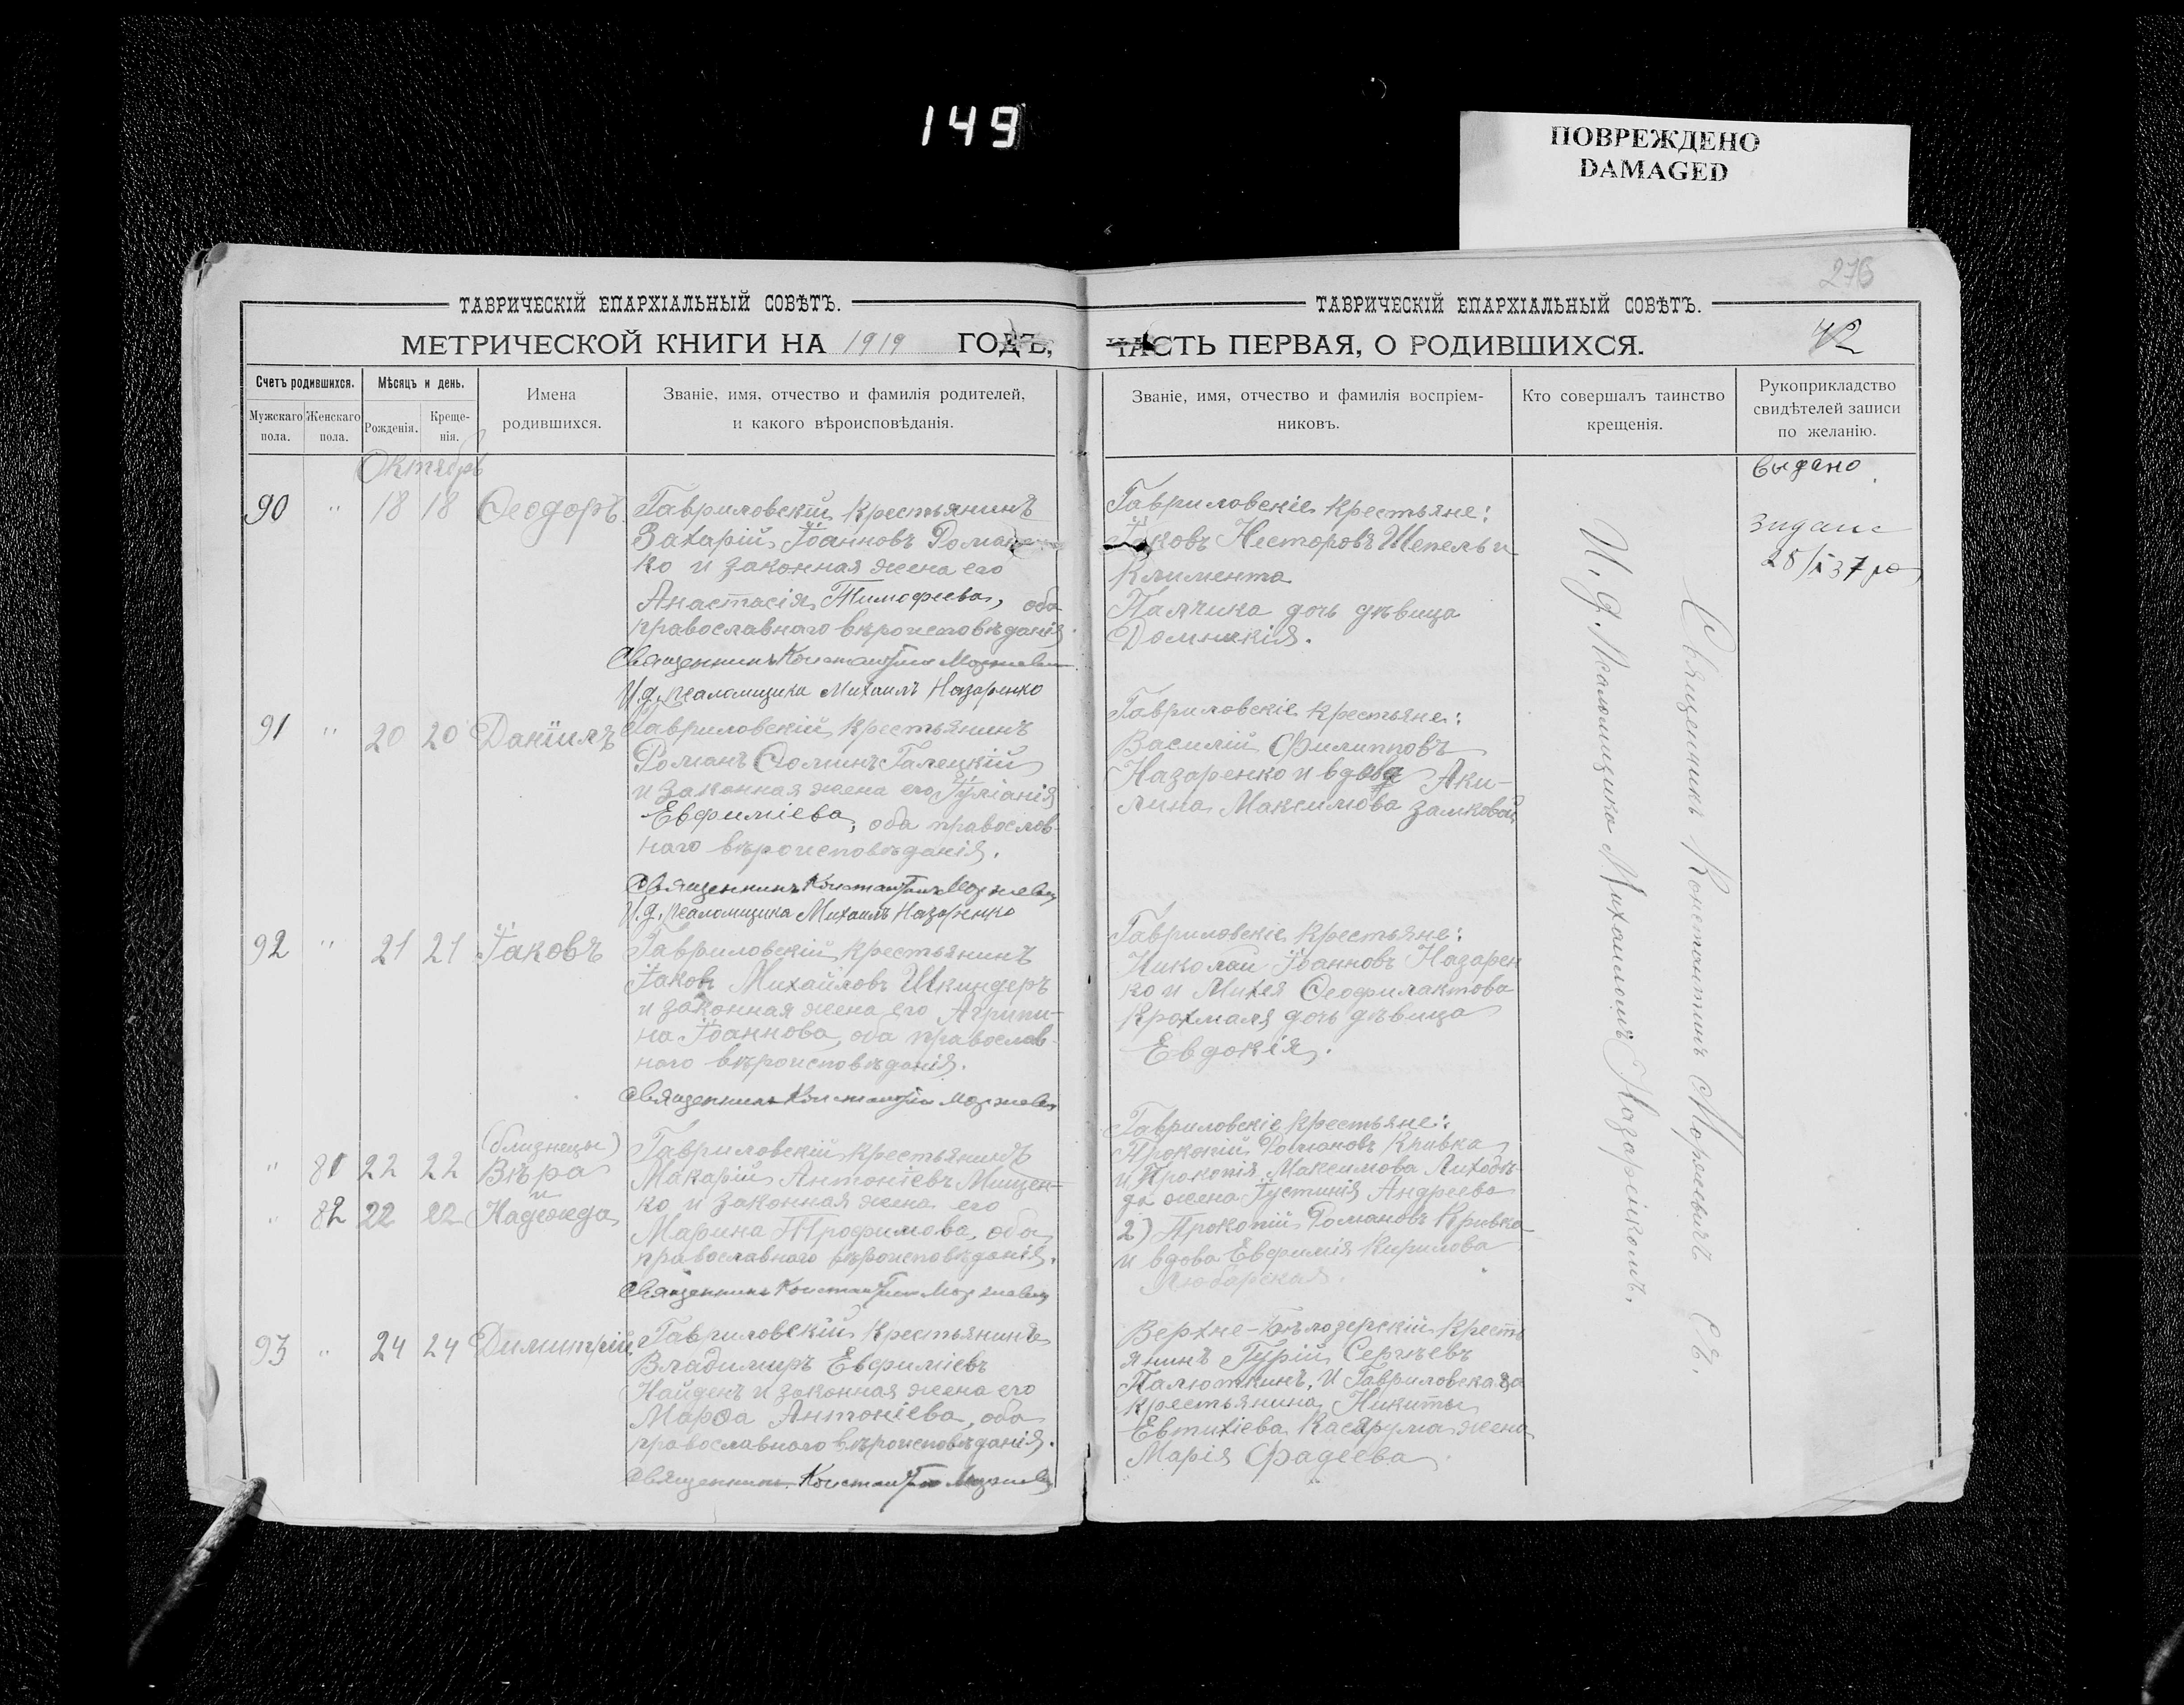 149
ПОВРЕЖДЕНО
DAMAGED
276
ТАВРИЧЕСКІЙ ЕПАРХІАЛЬНЫЙ СОВѢТЪ.
МЕТРИЧЕСКОЙ КНИГИ НА 1919 ГОДЪ,
Счетъ родившихся.
Мужскаго пола.
Женскаго пола.
Мѣсяцъ и день.
Рожденія.
Креще-
нія.
Имена
родившихся.
Званіе, имя, отчество и фамилія родителей,
и какого вѣроисповѣданія.
Октябрь
90 " 18 18 Ѳеодоръ
Гавриловскій крестьянинъ
Захарій Іоанновъ Романен
ко и законная жена его
Анастасія Тимофеева, оба
православнаго вѣроисповѣданія.
Священникъ Константинъ Моржевич
И.д. псаломщика Михаилъ Назаренко
91 " 20 20 Даніилъ
Гавриловскій крестьянинъ
Романъ Ѳоминъ Галецкій
и законная жена его Іуліанія
Евфиміева, оба православ-
наго вѣроисповѣданія.
Священникъ Константинъ Моржевич
И.д. псаломщика Михаилъ Назаренко
92 " 21 21 Іаковъ
Гавриловскій крестьянинъ
Іаковъ Михайловъ Шкиндеръ
и законная жена его Агрипи-
на Іоаннова, оба православ-
наго вѣроисповѣданія.
Священникъ Константинъ Моржевич
(близнецы)
" 81 22 22 Вѣра
и
" 82 22 22 Надежда
Гавриловскій крестьянинъ
Макарій Антоніевъ Мищен-
ко и законная жена его
Марина Трофимова, оба
православнаго вѣроисповѣданія.
Священникъ Константинъ Моржевич
93 " 24 24 Димитрій
Гавриловскій крестьянинъ
Владимиръ Евфиміевъ
Найденъ и законная жена его
Марѳа Антоніева, оба
православнаго вѣроисповѣданія.
Священникъ Константинъ Моржевич
ТАВРИЧЕСКІЙ ЕПАРХІАЛЬНЫЙ СОВѢТЪ.
ЧАСТЬ ПЕРВАЯ, О РОДИВШИХСЯ.
42
Званіе, имя, отчество и фамилія воспріем-
никовъ.
Кто совершалъ таинство
крещенія.
Рукоприкладство
свидѣтелей записи
по желанію.
Гавриловскіе крестьяне:
Іаковъ Несторовъ Шепель и
Климента
Палчика дочь дѣвица
Домникія.
Гавриловскіе крестьяне:
Василій Филипповъ
Назаренко и вдова Аки-
лина Максимова Замковой
Гавриловскіе крестьяне:
Николай Іоанновъ Назарен
ко и Михея Ѳеофилактова
Крохмаля дочь дѣвица
Евдокія.
Гавриловскіе крестьяне:
Прокопій Романовъ Кривка
и Прокопія Максимова Лиходѣ-
да жена Іустинія Андреева
2) Прокопій Романовъ Кривка
и вдова Евфимія Кирилова
Любарская
Верхне-Бѣлозерскій кресть
янинъ Гурій Сергѣевъ
Палюткинъ, и Гавриловскаго
крестьянина Никиты
Евтихіева жена
Марія Фадеева
Священникъ Константинъ Моржевичъ съ
И.д. Псаломщика Михаиломъ Назаренкомъ.
выдано